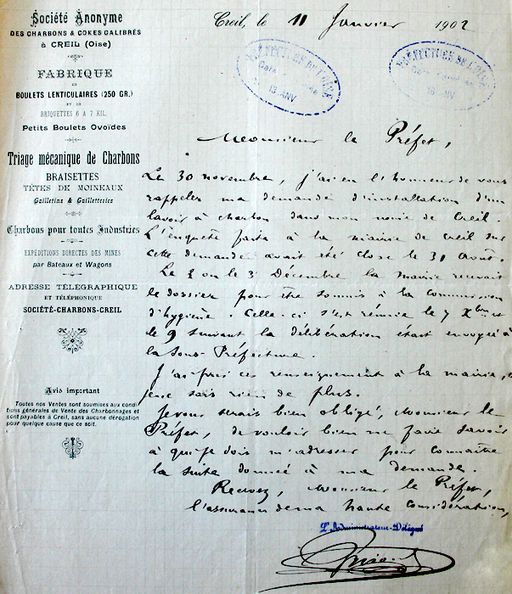 Société Anonyme
DES CHARBONS & COKES CALIBRÉS
à CREIL (Oise)
FABRIQUE
DE
BOULETS LENTICULAIRES (250 GR.)
ET DE
BRIQUETTES 6 A 7 KIL.
Petits Boulets Ovoïdes
Triage mécanique de Charbons
BRAISETTES
TÊTES DE MOINEAUX
Gailletins & Gailletteries
Charbons pour toutes Industries
EXPÉDITIONS DIRECTES DES MINES
par Bateaux et Wagons
ADRESSE TÉLÉGRAPHIQUE
ET TÉLÉPHONIQUE
SOCIÉTÉ-CHARBONS-CREIL
Avis important
Toutes nos Ventes sont soumises aux condi
tions générales de Vente des Charbonnages et
sont payables à Creil, sans aucune dérogation
pour quelque cause que ce soit.
Creil, le 11 Janvier 1902
PRÉFECTURE DE L'OISE
PRÉFECTURE DE L'OISE
Monsieur le Préfet,
Le 30 novembre, j'ai eu l'honneur de vous
rappeler ma demande d'installation d'un
lavoir à charbon dans mon usine de Creil.
L'enquête faite à la mairie de Creil sur
cette demande avait été close le 31 Août.
Le 2 ou le 3 Décembre la Mairie recevait
le dossier pour être soumis à la commission
d'hygiène. Celle-ci s'est réunie le 7 Xbre et
le 9 suivant la délibération était envoyée à
la Sous-Préfecture.
J'ai pris ces renseignement à la mairie, et
je ne sais rien de plus.
Je vous serais bien obligé, Monsieur le
Préfet, de vouloir bien me faire savoir
à qui je dois m'adresser pour connaître
la suite donnée à ma demande.
Recevez, Monsieur le Préfet,
l'assurance de ma haute considération,
L'Administrateur-Délégué